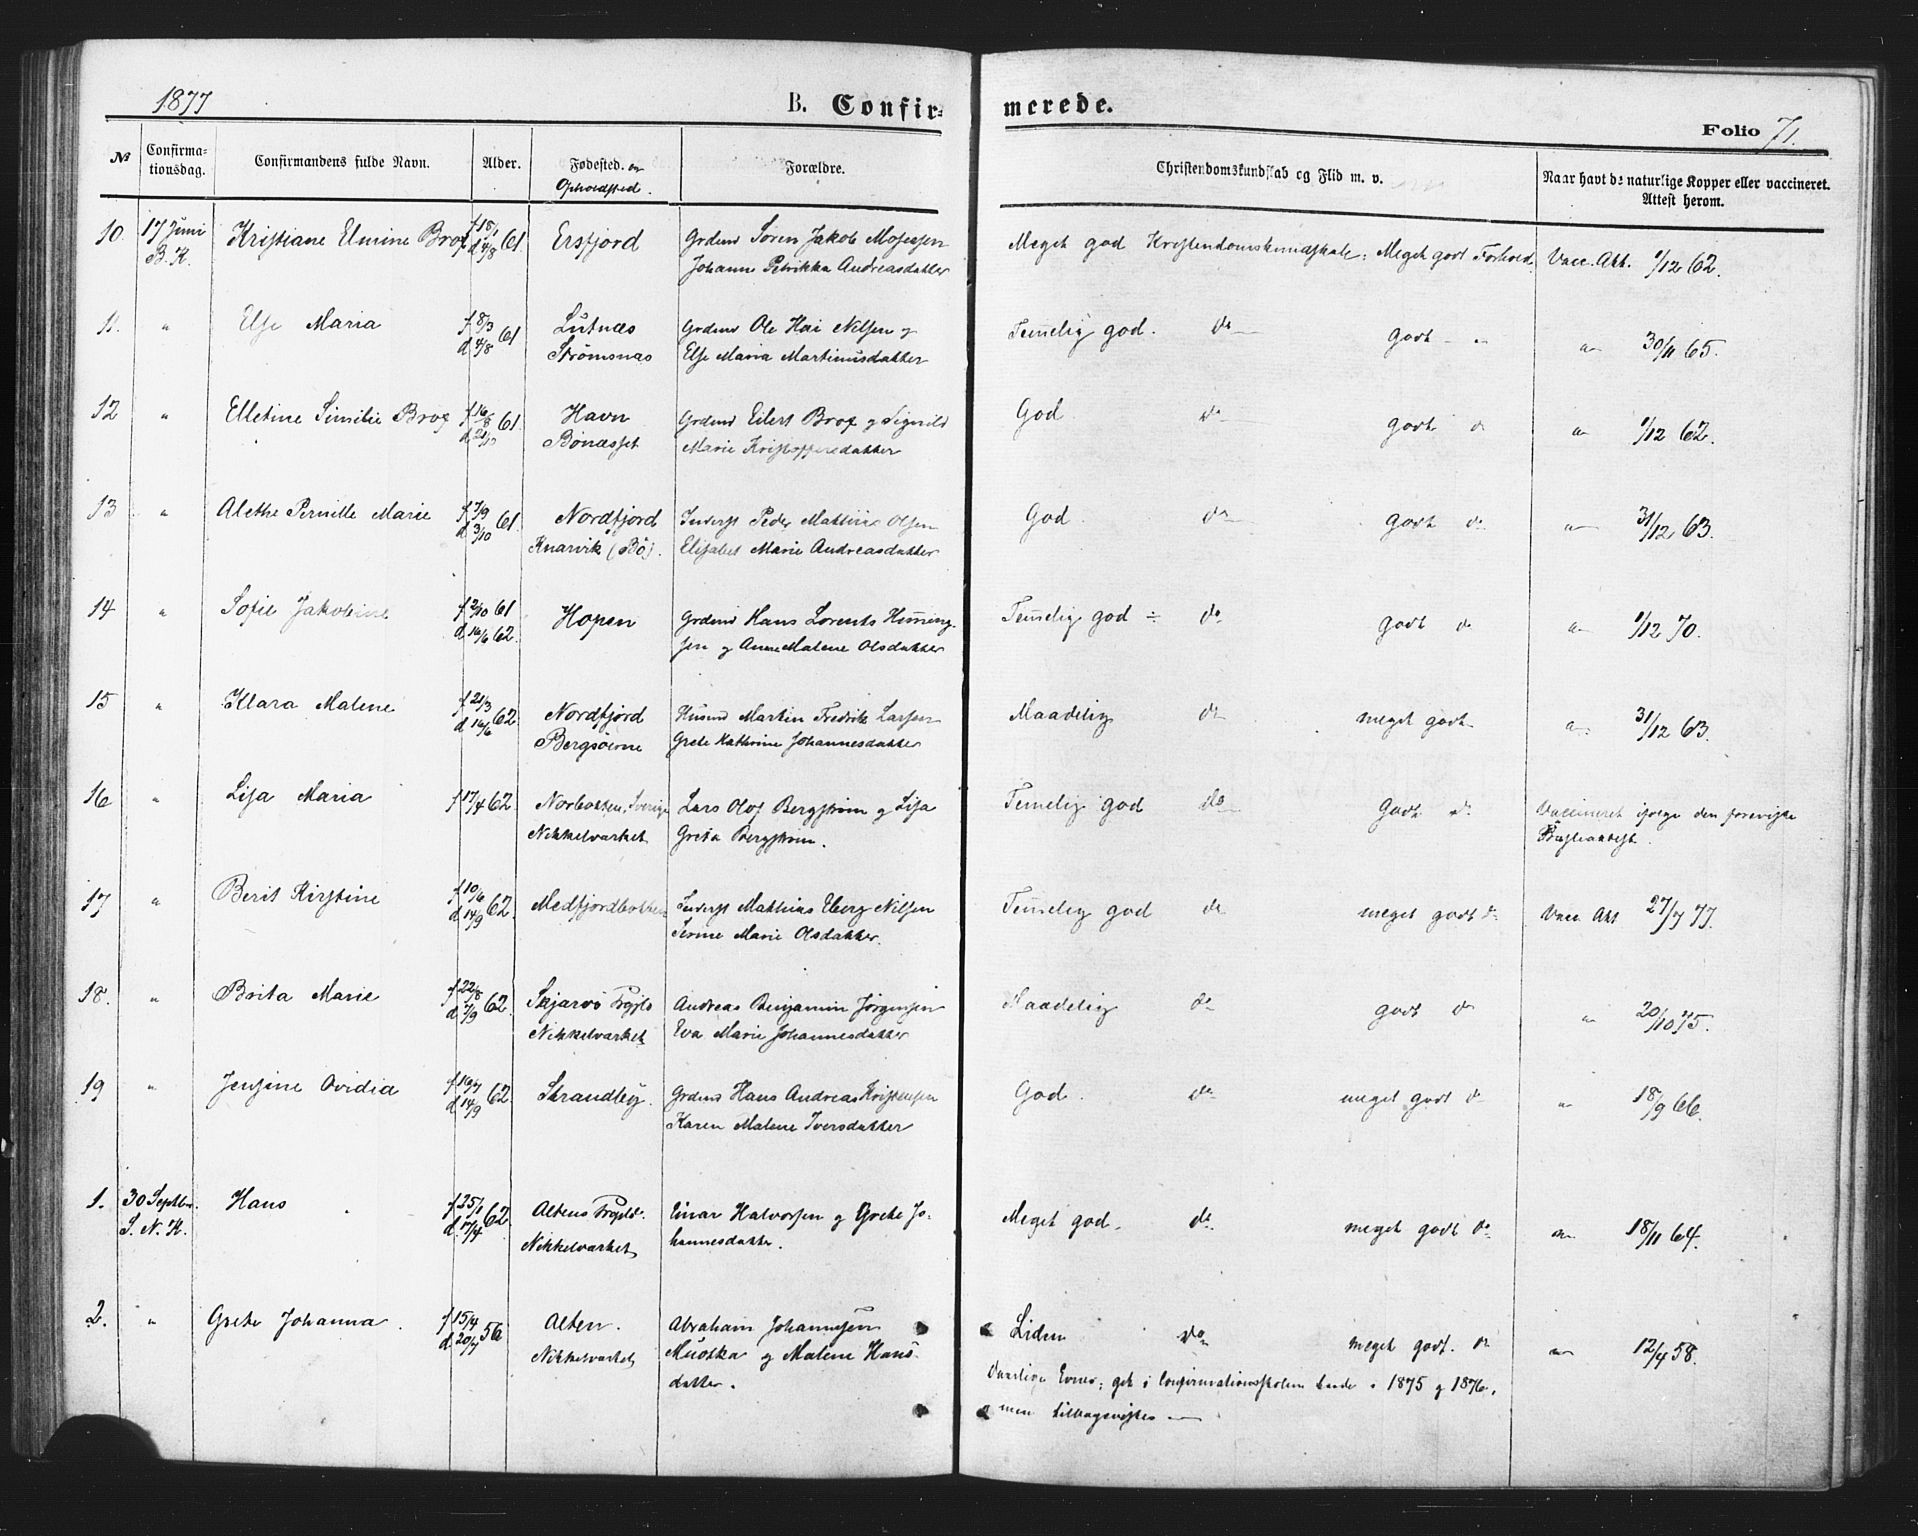 1877
B. Confirmerede.
Folio 71.
No
Confirmationsdag.
Confirmandens fulde Navn.
Alder.
Fødested. og Opholdsted.
Forældre.
Christendomskundskab og Flid m. v.
Naar havt de naturlige Kopper eller vaccineret. Attest herom.
10. 17 Juni Kristiane Elmine Brox f 15/1 61 Ersfjord Grdmd Søren Jakob Mosessen Meget god Kristendomskundskab: Meget godt Forhold Vacc. Att. 1/12 62.
B.K. d 4/8 Johanne Petrikka Andreasdatter
11. " Else Maria f 8/3 61 Lutnæs Grdmd Ole Hai Nilsen og Temelig god. do godt " " 30/11 65.
d 4/8 Strømsnas Else Maria Martinusdatter
12 " Elletine Similie Brox f 16/8 61 Havn Grdmd Eilert Brox og Signild God do godt do " 1/12 62.
d 21/10 Bønæsset Marie Kristoffersdatter
13 " Alethe Pernille Marie f 7/9 61 Nordfjord Inderst Peder Mathias Olsen God. do godt do " 31/12 63.
d 3/10 Knarvik (Bø). Elisabet Marie Andreasdatter
14 " Sofie Jakobine f 2/10 61 Hopen Grdmd Hans Lorents Heming- Temelig god ÷ do godt do " 1/12 70.
d 16/6 62. sen og Anne Malene Olsdatter
15 " Klara Malene f 21/3 62 Nordfjord Husmd Martin Fredrik Larsen Maadelig do meget godt " 31/12 63.
d 16/6 Bergsøerne Grete Kathrine Johannesdatter
16 " Lisa Maria f 17/4 62. Norbotten, Sverige Lars Olof Bergstrøm og Lisa Temelig god do Godt do Vaccineret ifølge den foreviste
Nikkelværket Greta Bergstrøm. Presteattest.
17 " Berit Kirstine f 10/6 62. Medfjordbotten Inderst Mathias Eberg Nilsen Temelig god do meget godt do Vacc. Att 27/7 77.
d 14/9 Marie Olsdatter.
18. " Brita Marie f 22/8 62. Skjærvø Prgjld Andreas Benjamin Jørgensen Maadelig do godt do " 20/10 75.
d /9 Nikkelværket Eva Marie Johannesdatter
19 " Jensine Ovidia f 19/7 62. Strandby. Grdmd Hans Andreas Kristensen God. do meget godt do " 18/9 66.
d. 14/9 Karen Malene Iversdatter
1. 30 Septbr. Hans f 25/1 62. Altens Prgjld. Einar Halvorsen og Grete Jo- Meget god. do. meget godt do " 18/11 64.
S. N. K. d. 17/4 Nikkelværket hannesdatter.
2. " Grete Johanna. f 15/4 56 Alten. Abraham Johannesen Liden do meget godt. do " 12/4 58.
d. 20/7 Nikkelværket Muotka og Malene Hans-
datter. Daarlige Evner; gik i Confirmationsskolen baade i 1875 og 1876,
men tilbagevistes